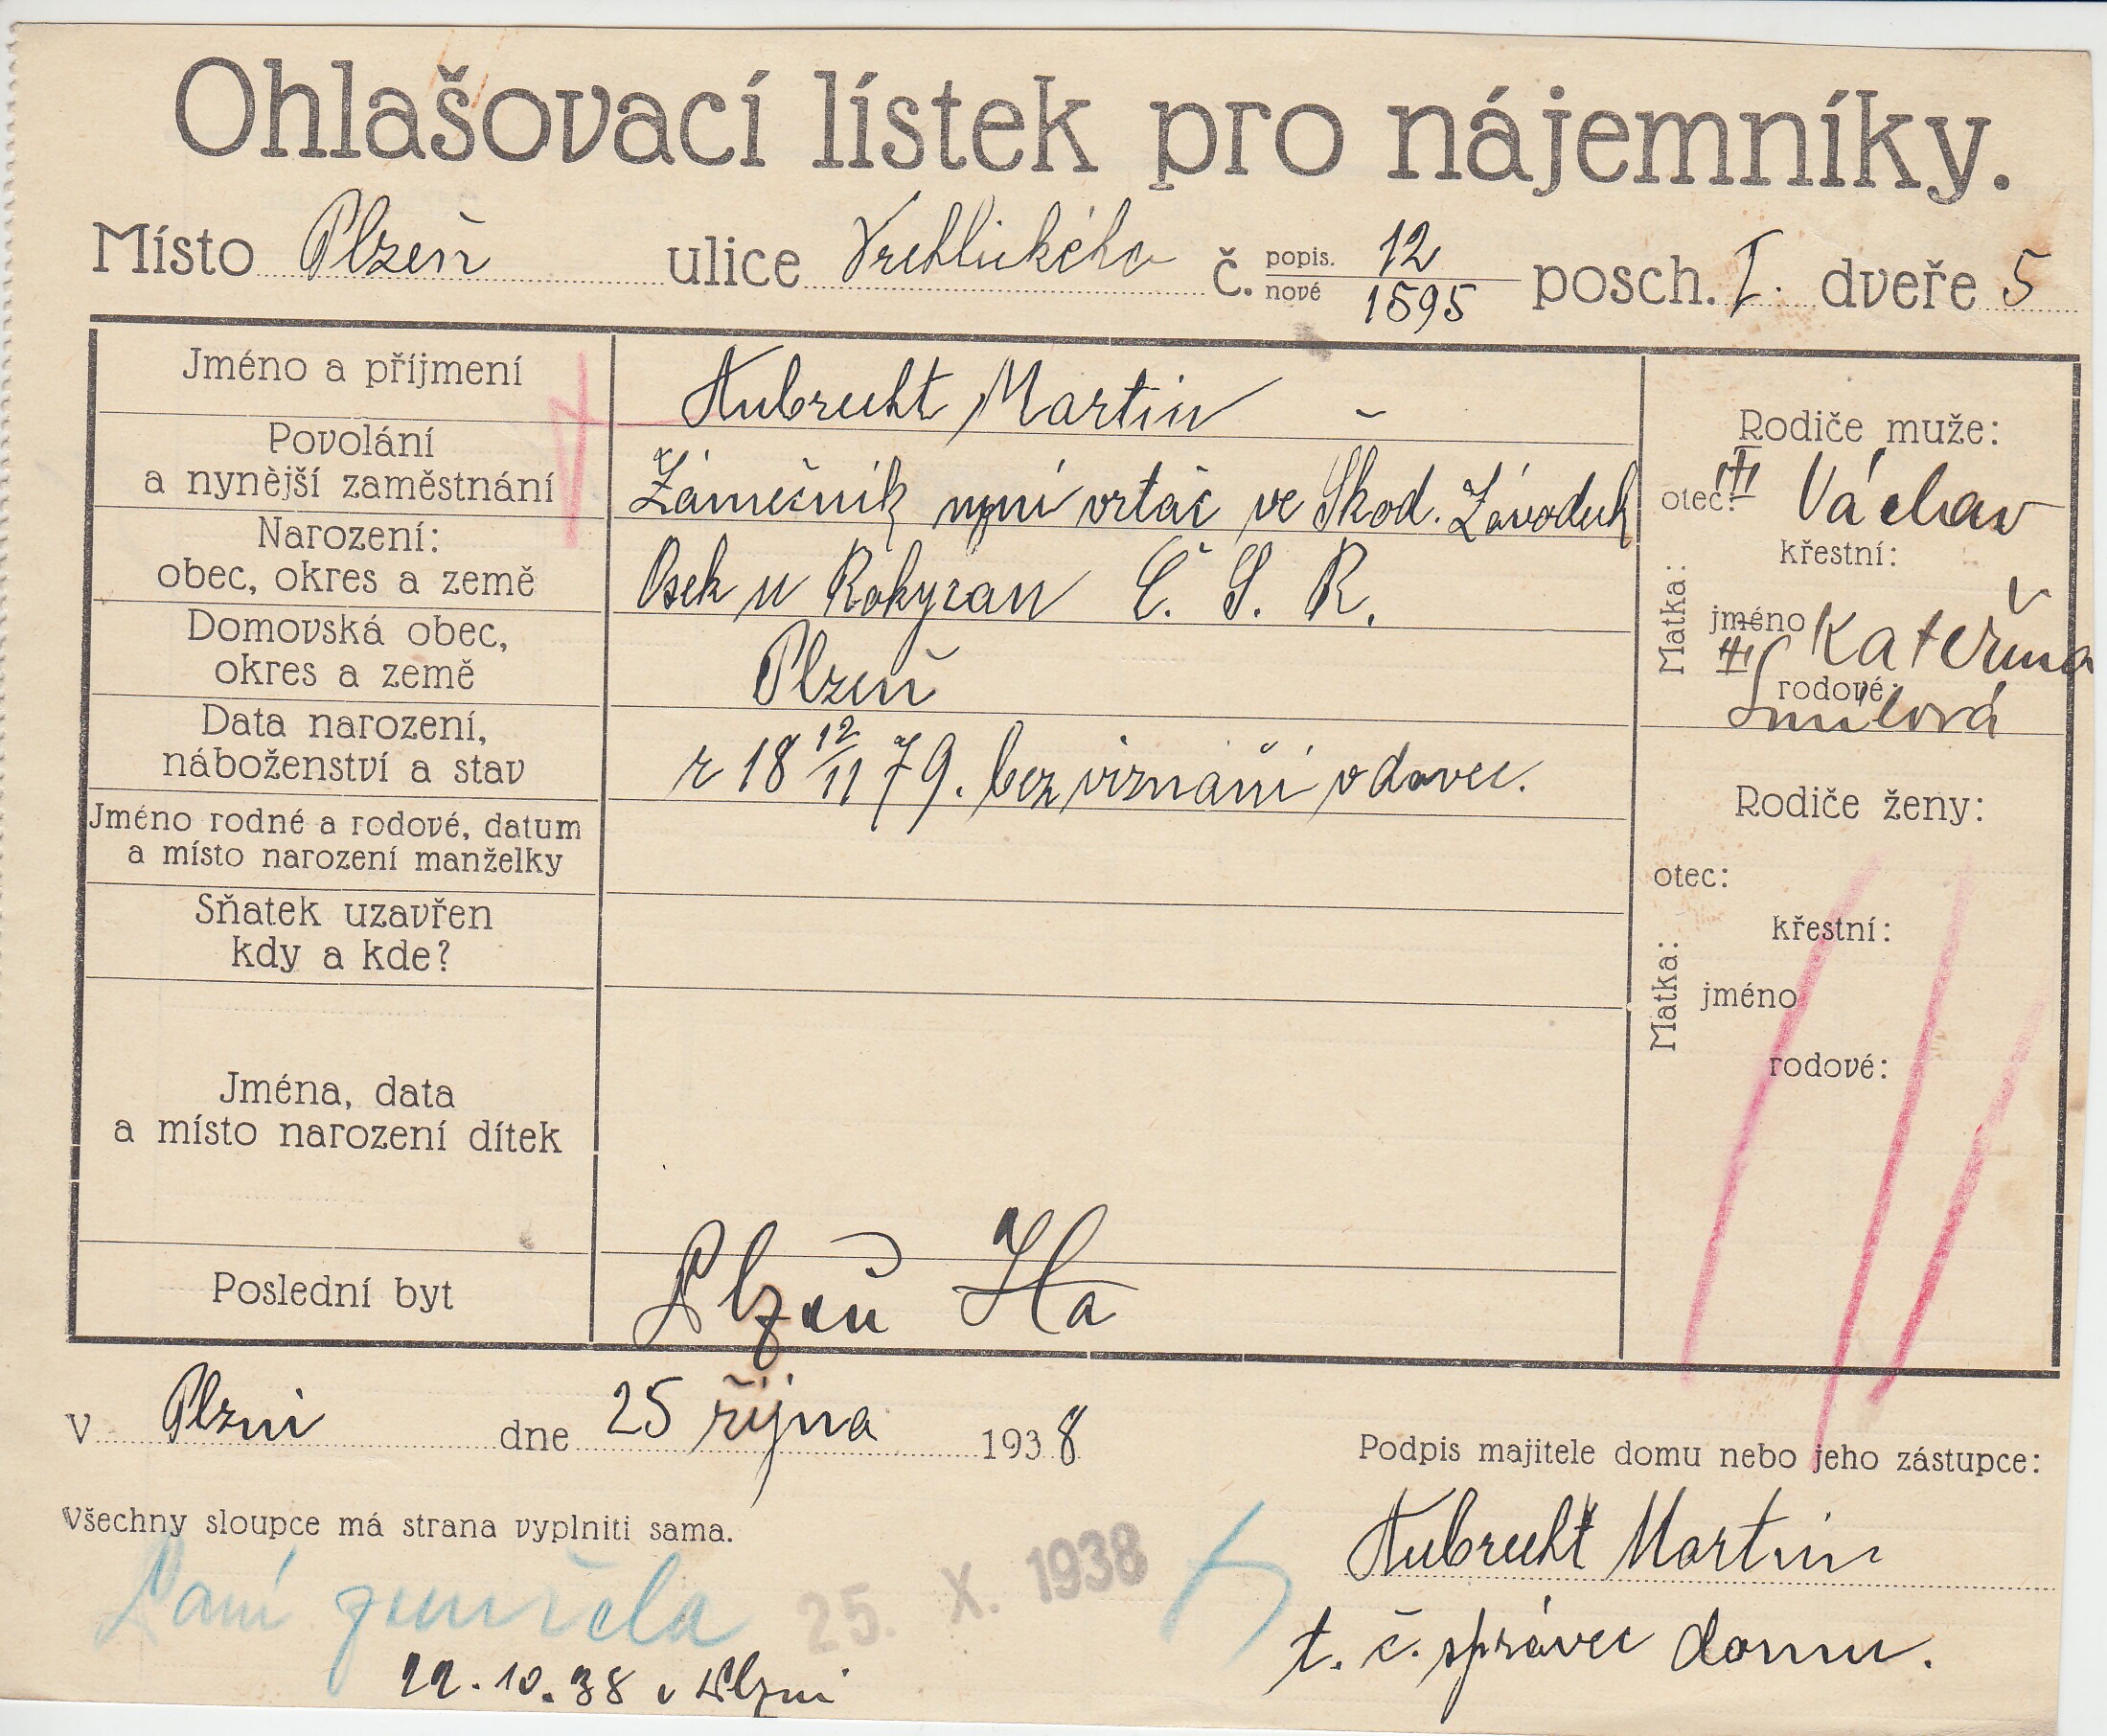 Ohlašovací lístek pro nájemníky.
Místo Plzeň ulice Vrchlického č. popis. 12 posch. I. dveře 5
nové 1595
Jméno a příjmení Aubrecht Martin –
Povolání
a nynější zaměstnání Zámečník nyní vrtač ve Škod. Závodech
Narození:
obec, okres a země Osek u Rokyzan Č. S. R.
Domovská obec,
okres a země Plzeň
Data narození,
náboženství a stav r 18 12/11 79. bez viznání vdovec.
Jméno rodné a rodové, datum
a místo narození manželky
Sňatek uzavřen
kdy a kde?
Jména, data
a místo narození dítek
Poslední byt Plzeň
Rodiče muže:
otec: Václav
Matka:
křestní:
jméno Kateřina
rodové:
Rodiče ženy:
otec:
Matka:
křestní:
jméno
rodové:
V Plzni dne 25 října 1938
Podpis majitele domu nebo jeho zástupce:
Všechny sloupce má strana vyplniti sama.
Aubrecht Martin
t. č. správce domu.
Paní zemřela
25. X. 1938
22.10.38 v Plzni